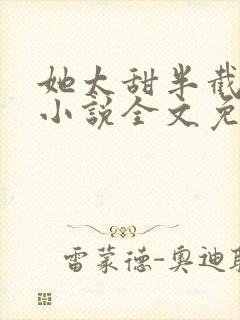 她太甜半截
小说全文免
雷蒙德-奥迪